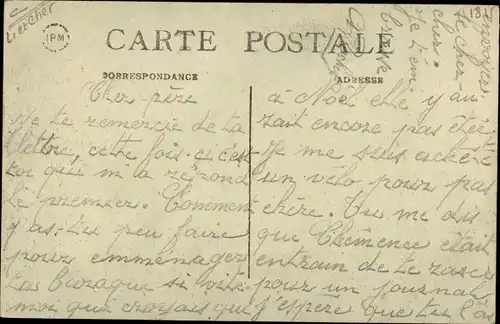 Loir et Cher
CARTE POSTALE
CORRESPONDANCE
ADRESSE
IPM
Cher père
Je te remercie de ta
lettre, cette fois-ci c'est
toi qui m'a répond
le premier. Comment
y as-tu pu faire
pour emménager
ta baraque si vite
moi qui croyais que
à Noël elle y au
rait encore pas été
Je me suis acheté
un vélo pour pas
chère. Tu me dis
que Clémence était
entrain de te raser
pour un journal
j'espère que tu l'as